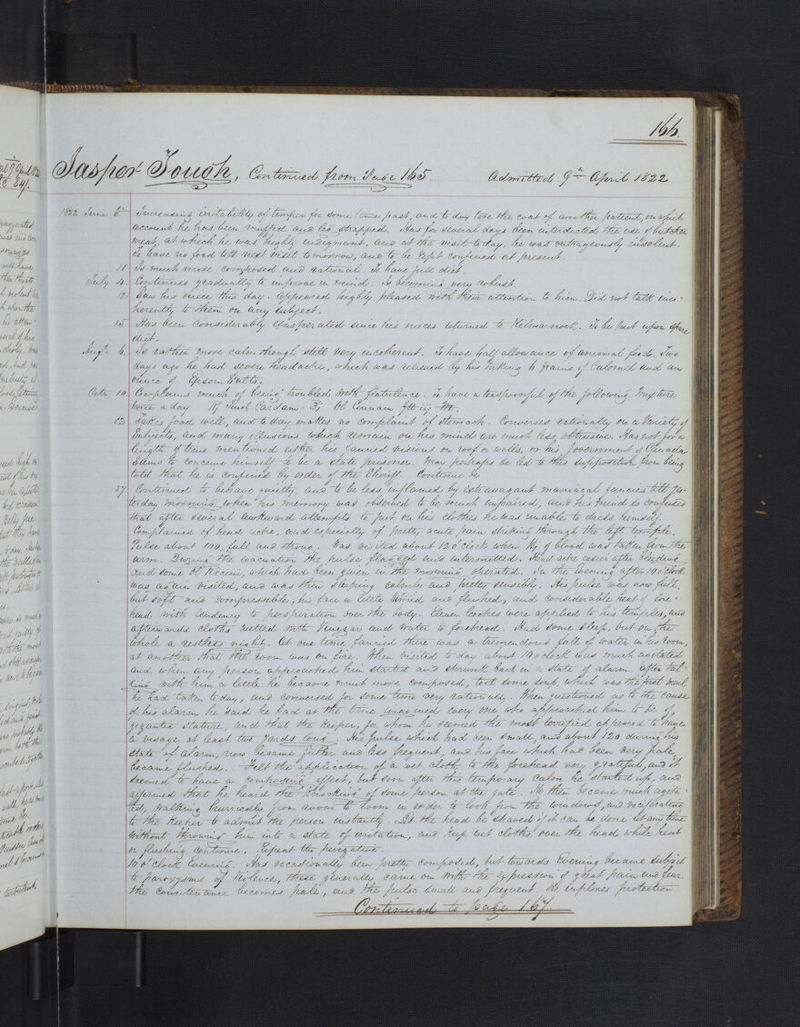 166.
Jasper Tough, Continued from Page 165. Admitted 9th April 1822
1822 June 8th Increasing irritability of temper for some time past, and to day tore the coat of another patient, on which
account he has been muffed and leg strapped. Has for several days been interdicted the use of butcher
meat, at which he was highly indignant, and at the visit to day, he was outrageously insolent.
To have no food till next visit tomorrow, and to be kept confined at present.
11 Is much more composed and rational. To have full diet.
July 4. Continues gradually to improve in mind. Is becoming very robust.
12 Saw his niece this day. Appeared highly pleased with their attention to him. Did not talk inco-
herently to them on any subject.
15 Has been considerably exasperated since his nieces returned to Kilmarnock. To be put upon spare
diet.
Augt. 6. Is rather more calm though still very incoherent. To have half allowance of animal food. Two
days ago he had severe headache, which was relieved by his taking 10 grains of Calomel and an
ounce of Epsom Salts.
Octr. 10. Complains much of being troubled with flatulence. To have a teaspoonful of the following mixture
twice a day
12 Takes food well, and to day makes no complaint of stomach. Converses rationally on a variety of
subjects, and many illusions which remain on his mind are much less obtrusive. Has not for a
length of time mentioned either his fancied visions on roof or walls, or his Government of Canada.
Seems to conceive himself to be a state prisoner. May perhaps be led to this supposition from being
told that he is confined by order of the Sheriff. Continue
27 Continued to behave quietly, and to be less inflamed by extravagant maniacal fancies till yes-
terday morning, when his memory was observed to be much impaired, and his mind so confused
that after several awkward attempts to put on his clothes he was unable to dress himself.
Complained of head ache, and especially of pretty acute pain striking through the left temple.
Pulse about 100, full and strong. Was visited about 12 o'clock when of blood was taken from the
arm. During the evacuation the pulse flagged and intermitted. Head ache easier after bleeding
and some which had been given in the morning, operated. In the evening after 10 o'clock
was again visited, and was then sleeping calmly, and pretty sensibly. His pulse was now full
but soft and compressible, his face a little turgid and flushed, and considerable heat of fore-
head with tendency to perspiration over the body. Eleven leeches were applied to his temples, and
afterwards cloths wetted with Vinegar and Water to forehead. Had some sleep, but on the
whole a restless night. At one time fancied there was a tremendous fall of water in his room,
at another that the room was on fire. When visited to day about 10 o'clock was much agitated
and when any person approached him started and shrunk back in a state of alarm. After tal-
king with him a little he became much more composed, took some soup, which was the first meal
he had taken to day, and conversed for some time very rationally. When questioned as to the cause
of his alarm he said he had at the time imagined every one who approached him to be of
gigantic stature, and that the keeper, for whom he seemed the most terrified appeared to have
a visage at least two yards long. His pulse which had been small, and about 120 during his
state of alarm, now became fuller and less frequent, and his face which had been very pale
became flushed. Felt the application of a wet cloth to the forehead very grateful, and it
seemed to have a composing effect, but soon after this temporary calm he started up, and
affirmed that he heard the knocking of some person at the gate. He then became much agita-
ted, walking hurriedly from room to room in order to look from the windows, and vociferating
to the keeper to admit the person instantly. Let the head be shaved if it can be done at any time
without throwing him into a state of irritation, and keep wet cloths over the head while heat
or flushing continue. Repeat the purgative.
10 o'clock Evening. Has occasionally been pretty composed, but towards Evening became subject
to paroxysms of violence, these generally came on with the expression of great pain and fear.
The countenance becomes pale, and the pulse small and frequent. He implores protection
Continued to page 167.